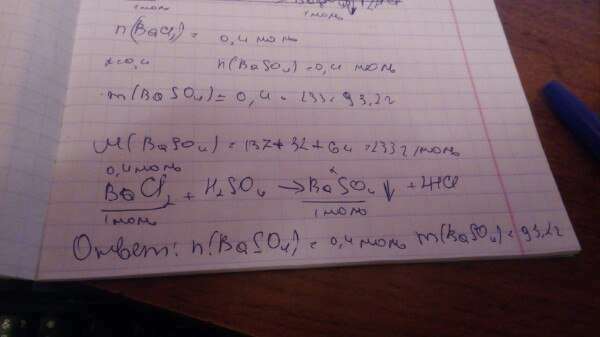 1 моль 1 моль
n(BaCl2) = 0,4 моль
x=0,4 n(BaSO4)=0,4 моль
m(BaSO4)= 0,4 · 233=93,2г
M(BaSO4)=137+32+64=233г/моль
0,4моль x
BaCl2 + H2SO4 → BaSO4↓ + 2HCl
1 моль 1 моль
Ответ: n(BaSO4)=0,4 моль m(BaSO4)=93,2г